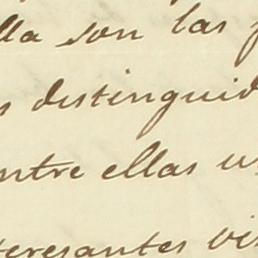 lla son las
s distinguid
ntre ellas u
teresantes vis